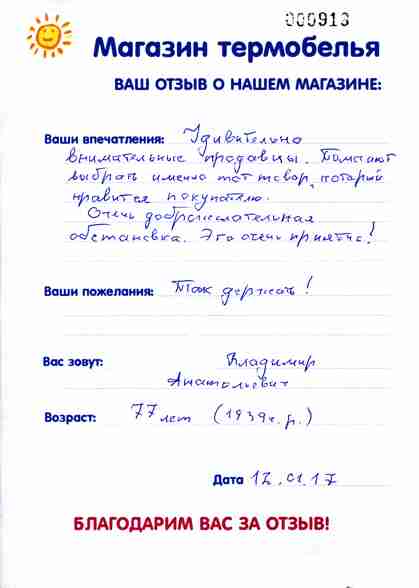 000913
Магазин термобелья
ВАШ ОТЗЫВ О НАШЕМ МАГАЗИНЕ:
Ваши впечатления: Удивительно
внимательные продавцы. Помогают
выбрать именно тот товар, который
нравится покупателю.
Очень доброжелательная
обстановка. Это очень приятно!
Ваши пожелания: Так держать!
Вас зовут: Владимир
Анатольевич
Возраст: 77 лет (1939 г.р.)
Дата 12.01.17
БЛАГОДАРИМ ВАС ЗА ОТЗЫВ!